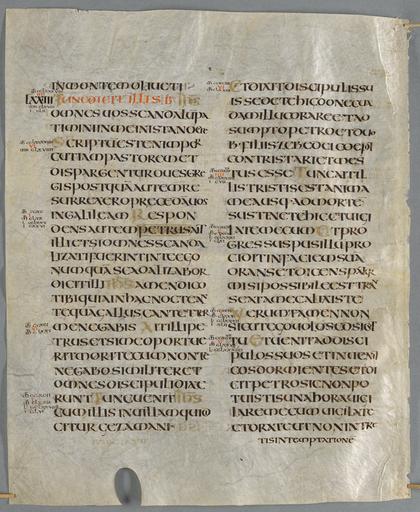 IN MONTEM OLIUETI
LXXIII TUNC DICIT ILLIS IHS
OMNES UOS SCANDALUM PA
TIMINI IN ME IN ISTA NOCTE
SCRIPTUM EST ENIM PER
CUTIAM PASTOREM ET
DISPARGENTUR OUES GRE
GIS POSTQUAM AUTEM RE
SURREXERO PRAECEDAM UOS
IN GALILEAM RESPON
DENS AUTEM PETRUS AIT
ILLI ET SI OMNES SCANDA
LIZATI FUERINT IN TE EGO
NUMQUAM SCANDALIZABOR
DICIT ILLI IHS AMEN DICO
TIBI QUIA IN HAC NOCTE AN
TEQUAM GALLUS CANTET TER
ME NEGABIS AIT ILLI PE
TRUS ETSI ME OPORTUE
RIT MORI TECUM NON TE
NEGABO SIMILITER ET
OMNES DISCIPULI DIXE
RUNT TUNC UENIT IHS
CUM ILLIS IN UILLAM QUAE DI
CITUR GEZAMANI
ET DIXIT DISCIPULIS SU
IS SEDETE HIC DONEC UA
DAM ILLUC ORARE ET AD
SUMPTO PETRO ET DUO
B FILIIS ZEBEDEI COEPIT
CONTRISTARI ET MES
TUS ESSE TUNC AIT IL
LIS TRISTIS EST ANIMA
MEA USQ AD MORTE
SUSTINETE HIC ET UIGI
LATE MECUM ET PRO
GRESSUS PUSILLUM PRO
CIDIT IN FACIEM SUAM
ORANS ET DICENS PATER
MI SI POSSIBILE EST TRAN
SEAT A ME CALIX ISTE
UERUMTAMEN NON
SICUT EGO UOLO SED SICUT
TU ET UENIT AD DISCI
PULOS SUOS ET INUENIT
EOS DORMIENTES ET DI
CIT PETRO SIC NON PO
TUISTIS UNA HORA UIGI
LARE MECUM UIGILATE
ET ORATE UT NON INTRE
TIS IN TEMPTATIONE